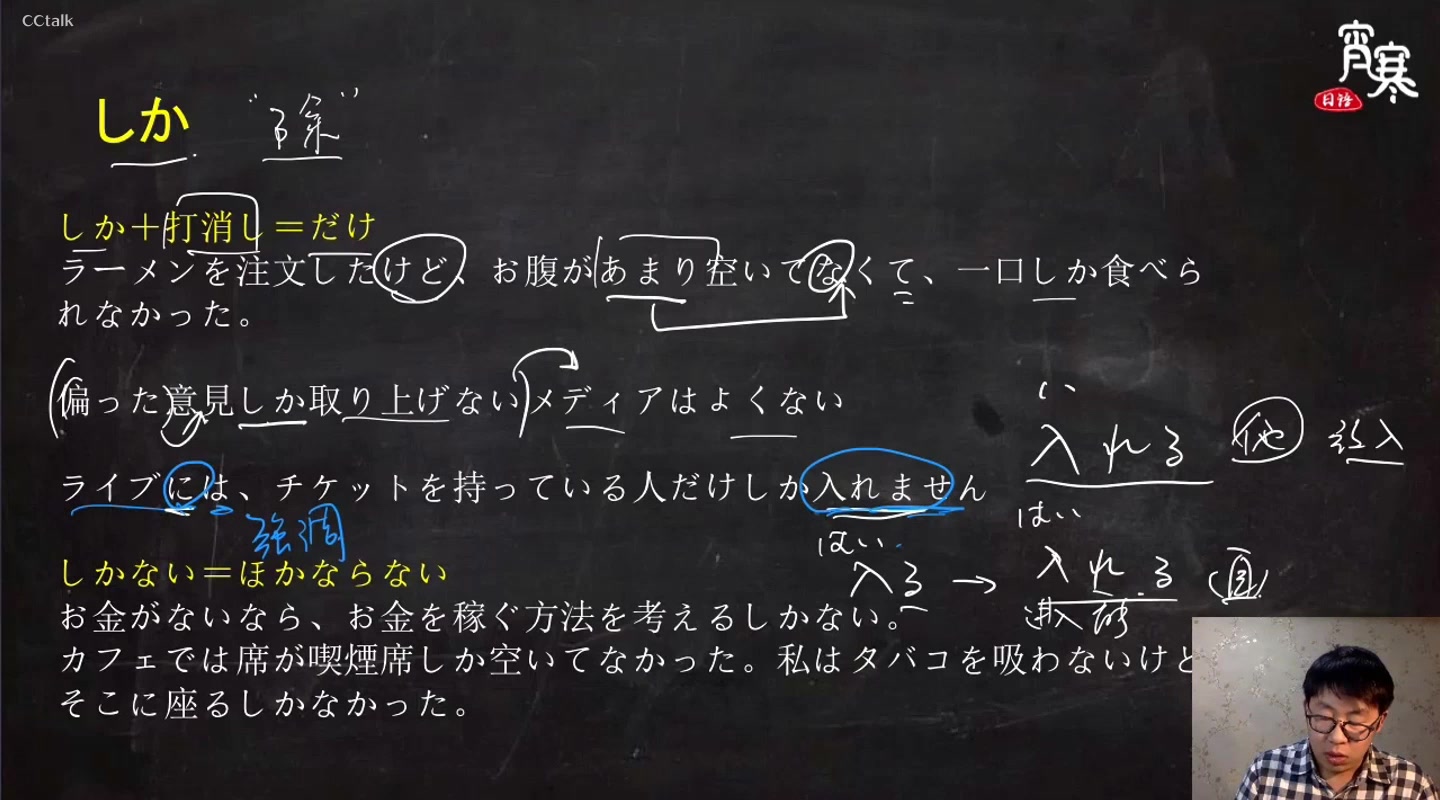 CCtalk
宵寒
日语
しか “除”
しか＋打消し＝だけ
ラーメンを注文したけど、お腹があまり空いてなくて、一口しか食べら
れなかった。
偏った意見しか取り上げないメディアはよくない
い
入れる 他 放入
ライブには、チケットを持っている人だけしか入れません
強調
はい
はい
入る → 入れる (自)
进入 能
しかない＝ほかならない
お金がないなら、お金を稼ぐ方法を考えるしかない。
カフェでは席が喫煙席しか空いてなかった。私はタバコを吸わないけど
そこに座るしかなかった。